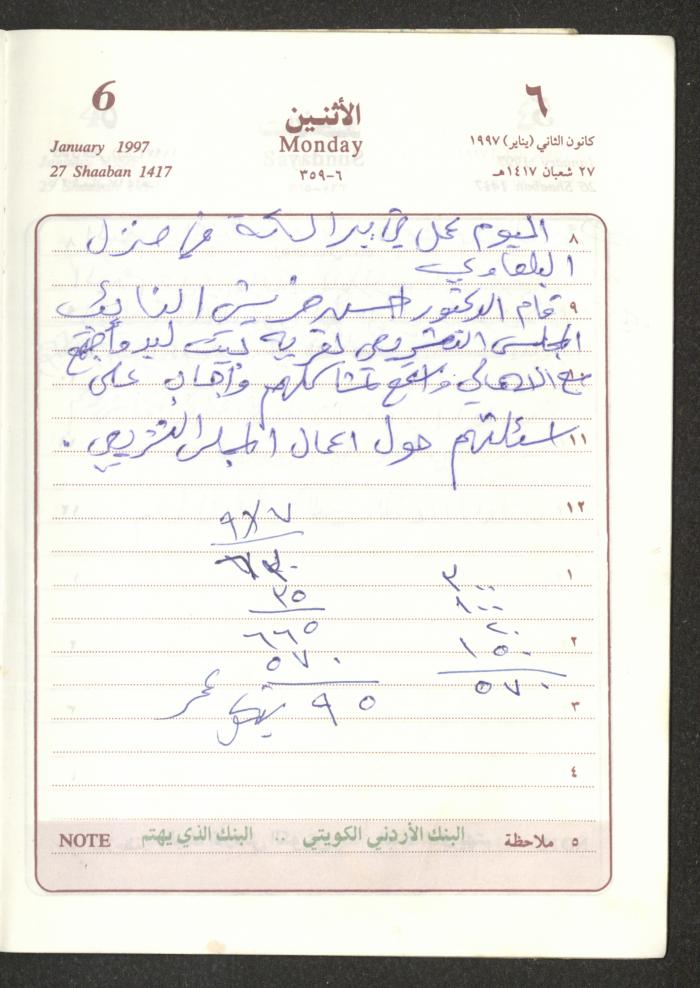 6
الأثنين
٦
January 1997
Monday
كانون الثاني (يناير) ١٩٩٧
27 Shaaban 1417
٦-٣٥٩
٢٧ شعبان ١٤١٧هـ
٨ اليوم عمل في في منزل
البلعاوي
٩ قام الدكتور حسن خريشي النائب
المجلس التشريعي لقرية بيت ليد واجتمع
مع الاهالي واستمع لمشاكلهم واجاب على
١١ اسئلتهم حول اعمال المجلس التشريعي .
١٢
١
٣٠٠
١٠٠
٢٠
١٥٠
٥٧٠
٣٥
٦٦٥
٥٧٠
٩٥
عمر
٢
٣
٤
NOTE
البنك الأردني الكويتي .. البنك الذي يهتم
٥ ملاحظة